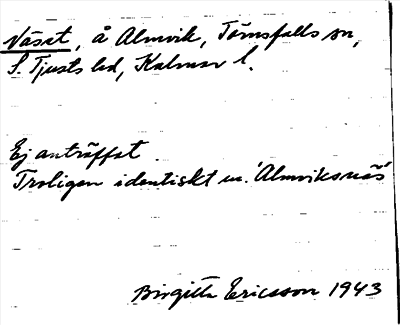 Väsat, å Almvik, Törnsfalls sn,
S. Tjusts hd, Kalmar l.
Ej anträffat.
Troligen identiskt m. 'Almviksnäs'
Birgitta Ericsson 1943